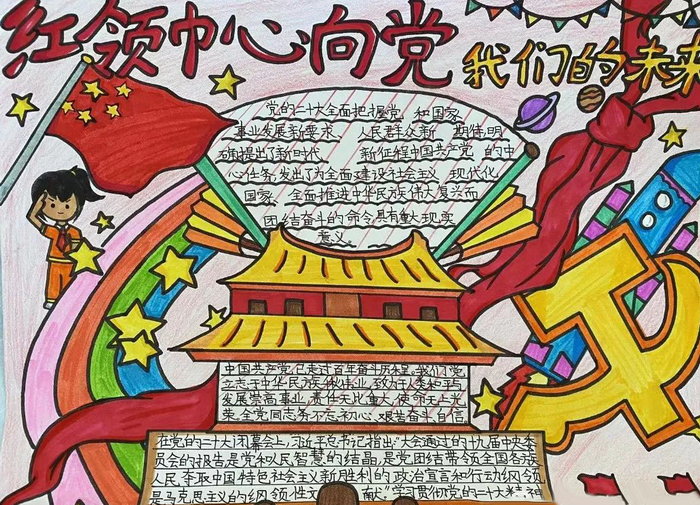 红领巾心向党
我们的未来
党的二十大全面把握党 和国家
事业发展新要求 人民群众新 期待,明
确提出了新时代 新征程中国共产党 的中
心任务,发出了为全面建设社会主义 现代化
国家、全面推进中华民族伟大复兴而
团结奋斗的命令,具有重大现实
意义。
中国共产党已走过百年奋斗历程。我们党
立志于中华民族千秋伟业,致力于人类和平与
发展崇高事业,责任无比重大,使命无上光
荣。全党同志务不忘初心、艰苦奋斗、自信
在党的二十大闭幕会上,习近平总书记指出:“大会通过的十九届中央委
员会的报告,是党和人民智慧的结晶,是党团结带领全国各族
人民 夺取中国特色社会主义新胜利的政治宣言和行动纲领
是马克思主义的纲领性文 献。”学习贯彻党的二十大精神